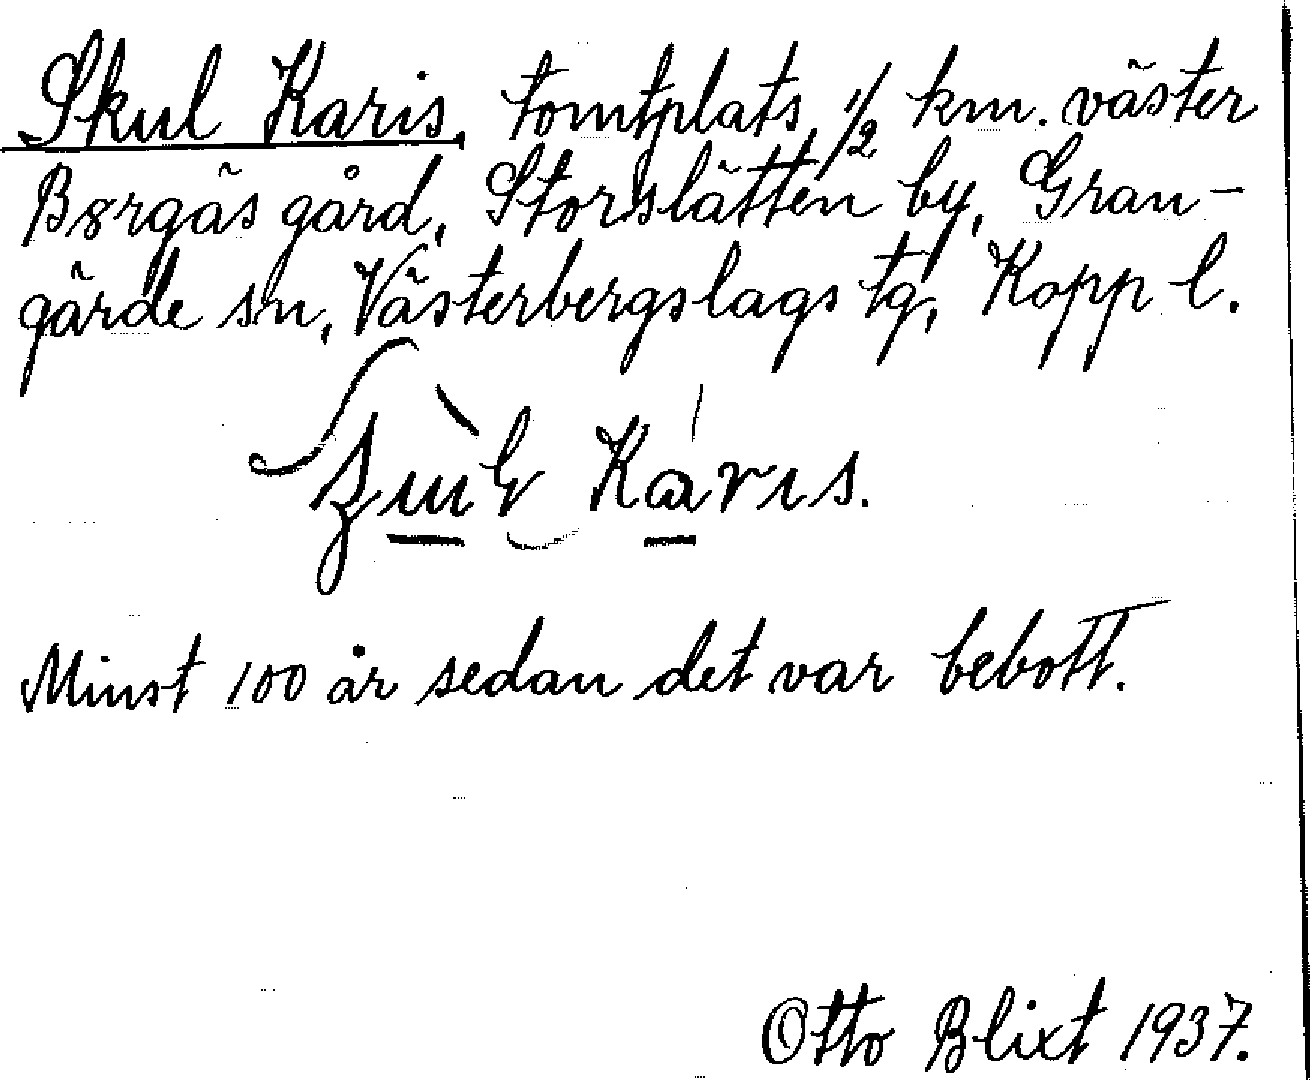 Skul Karis, tomtplats, 1/2 km. väster
Bergäs gård, Storslätten by, Gran-
gärde sn, Västerbergslags tg, Kopp l.
Karıs.
Minst 100 år sedan det var bebott.
Otto Blixt 1937.